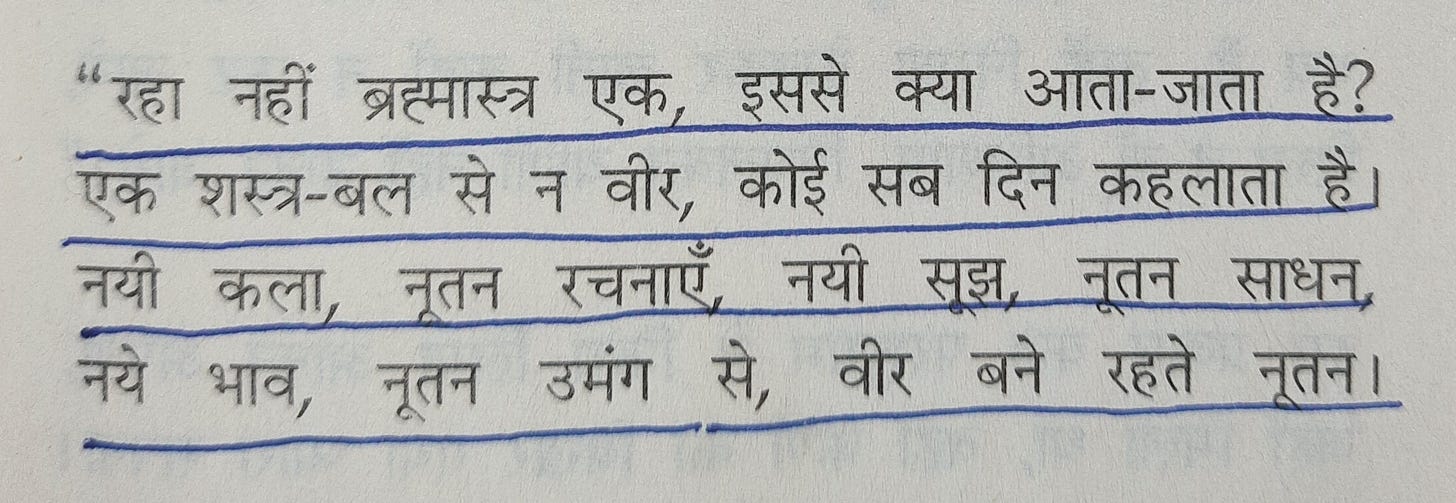 “रहा नहीं ब्रह्मास्त्र एक, इससे क्या आता-जाता है?
एक शस्त्र-बल से न वीर, कोई सब दिन कहलाता है।
नयी कला, नूतन रचनाएँ, नयी सूझ, नूतन साधन,
नये भाव, नूतन उमंग से, वीर बने रहते नूतन।